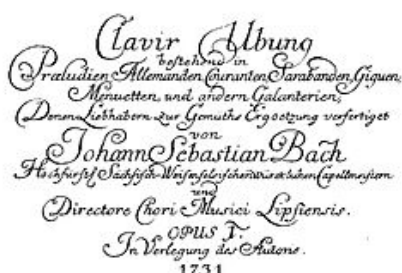 Clavir Ubung
bestehend in
Præludien, Allemanden, Couranten, Sarabanden, Giquen,
Menuetten, und andern Galanterien;
Denen Liebhabern zur Gemuths Ergoetzung verfertiget
von
Johann Sebastian Bach
Hochfürstl Sächsisch-Weisenfelsischen würcklichen Capellmeistern
und
Directore Chori Musici Lipsiensis.
OPUS I.
In Verlegung des Autoris.
1731